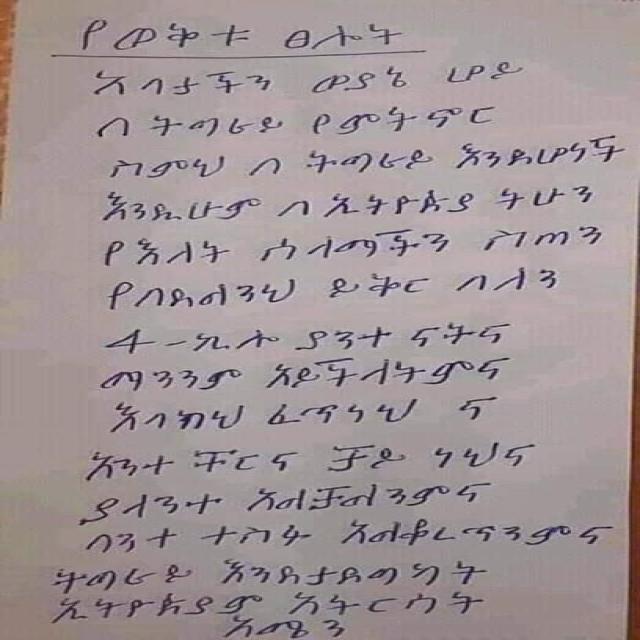 የወቅቱ ፀሎት
አባታችን ወያኔ ሆይ
በትግራይ የምትኖር
ስምህ በትግራይ እንደሆነች
እንዲሁም በኢትዮጵያ ትሁን
የእለት ሰላማችንን ስጠን
የበደለንህ ይቅር በለን
ያንተ ናትና
ማንንም አይችላትምና
እባክህ ፈጥነህ ና
አንተ ቸርና ቻይ ነህና
ያላንተ አልቻልንምና
ባንተ ተስፋ አልቆረጥንምና
ትግራይ እንደታደግካት
ኢትዮጵያም አትርሳት
አሜን